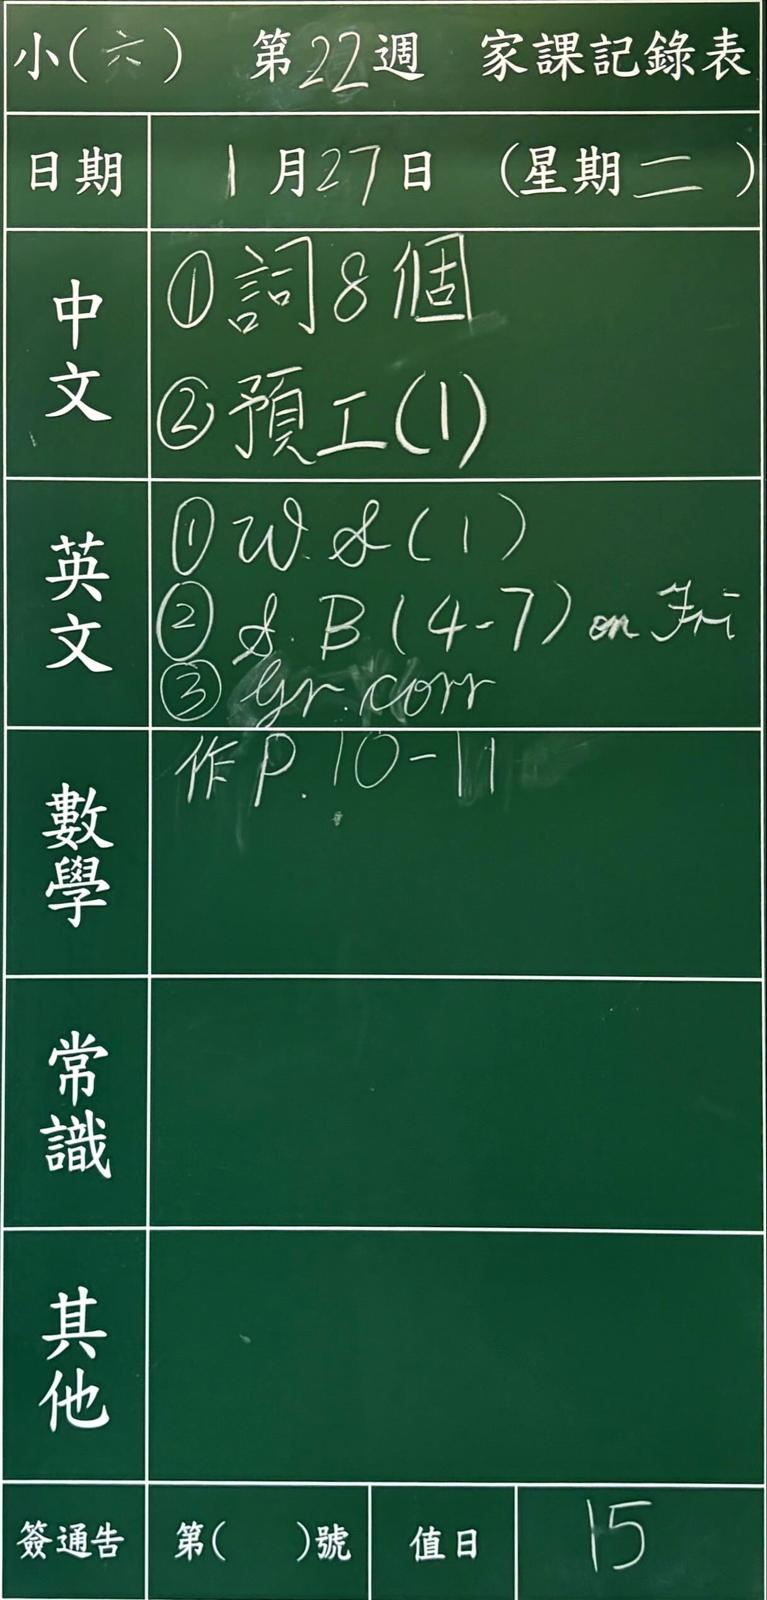 小(六) 第22週 家課記錄表
日期 1月27日 (星期二)
中文
①詞8個
②預工(1)
英文
①W.S(1)
②S.B(4-7) on Fri
③Gr.corr
數學
作P.10-11
常識
其他
簽通告 第( )號 值日 15